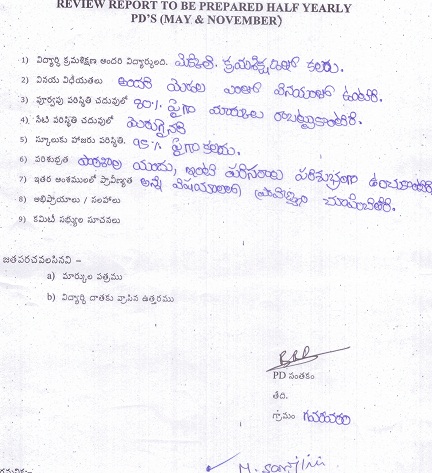 REVIEW REPORT TO BE PREPARED HALF YEARLY
PD'S (MAY & NOVEMBER)
1) విద్యార్థి క్రమశిక్షణ అందరి విద్యార్థులది. క్రమశిక్షణలో కలరు.
2) వినయ విధేయతలు అందరి ఎంతో వినయంతో ఉంటారు.
3) పూర్వపు పరిస్థితి చదువులో 80% పైగా మార్కులు రాబట్టుకుంటారు.
4) నేటి పరిస్థితి చదువులో మెరుగైనది
5) స్కూలుకు హాజరు పరిస్థితి. 95% పైగా కలరు.
6) పరిశుభ్రత పాఠశాల యందు, ఇంటి పరిసరాల పరిశుభ్రంగా ఉంచుకుంటారు
7) ఇతర అంశములలో ప్రావీణ్యత అన్ని విషయాలలో ప్రావీణ్యం
8) అభిప్రాయాలు / సలహాలు
9) కమిటీ సభ్యుల సూచనలు
జతపరచవలసినవి –
a) మార్కుల పత్రము
b) విద్యార్థి దాతకు వ్రాసిన ఉత్తరము
PD సంతకం
తేది.
గ్రామం గవరవరం